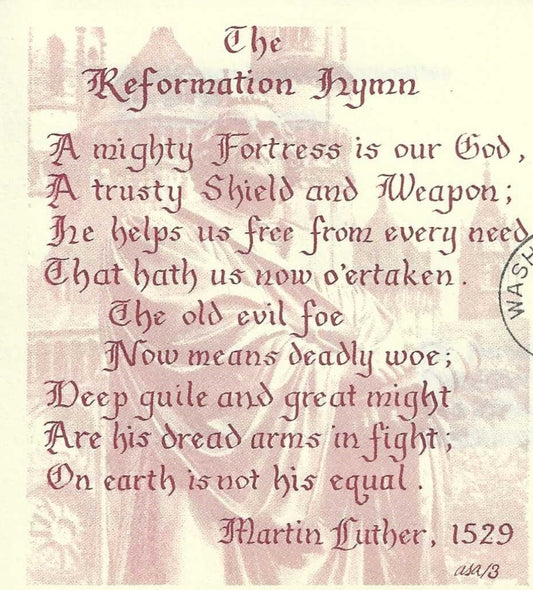 The
Reformation Hymn
A mighty Fortress is our God,
A trusty Shield and Weapon;
He helps us free from every need
That hath us now o'ertaken.
The old evil foe
Now means deadly woe;
Deep guile and great might
Are his dread arms in fight;
On earth is not his equal.
Martin Luther, 1529
asa/3
WASH